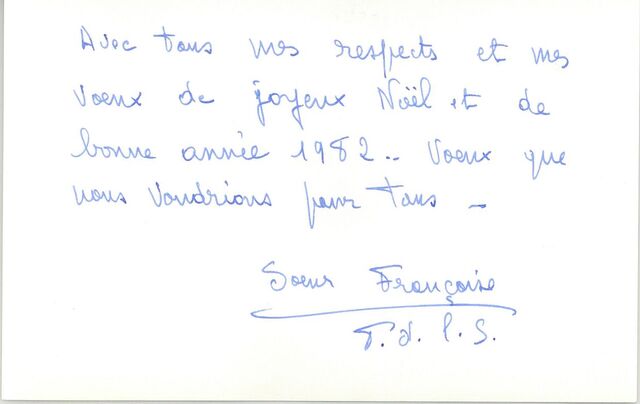 Avec tous mes respects et mes
voeux de joyeux Noël et de
bonne année 1982.. Voeux que
nous voudrions pour tous -
Soeur Françoise
F. d. l. S.